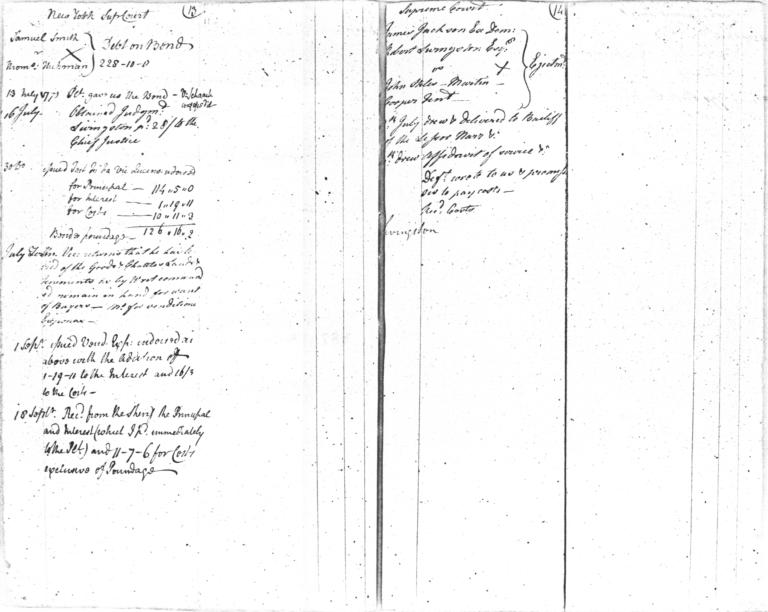 New York Sup Court (13)
Samuel Smith
v
Hickman
Debt on Bond
228-10-8
13 July 1773 Plt. gave us the Bond -
16 July. Obtained Judgmt.
Livingston pd. 28/ to the
Chief Justice
30 Do. issued indorsed
for Principal - 114"5"0
for Interest - 1"19"11
for Costs - 10"11"3
Bonds poundage 126"16"2
July Term Vice returns that he has
of the Goods & Chattles Lands &
Tenements &c by Writ command
ed remain in hand for want
of Buyers -
1 Septr. issued Vend. Exp: indorsed as
above with the Addition of
1-19-11 to the Interest and 16/3
to the Costs -
18 Septr. Recd. from the Sheriff the Principal
and Interest (which I pd. immediately
to the Plt.) and 11-7-6 for Costs
exclusive of Poundage
Supreme Court (14)
James Jackson Ex Dem:
Robert Livingston Esqr.
vs
John Stiles - Martin
Cooper Tent
Ejectmt.
July drew & delivered to Bailiff
of the Lessor Narr &c
drew Affidavit of service &c
Deft. wrote to us & promis
to pay costs -
Recd. Costs
Livingston